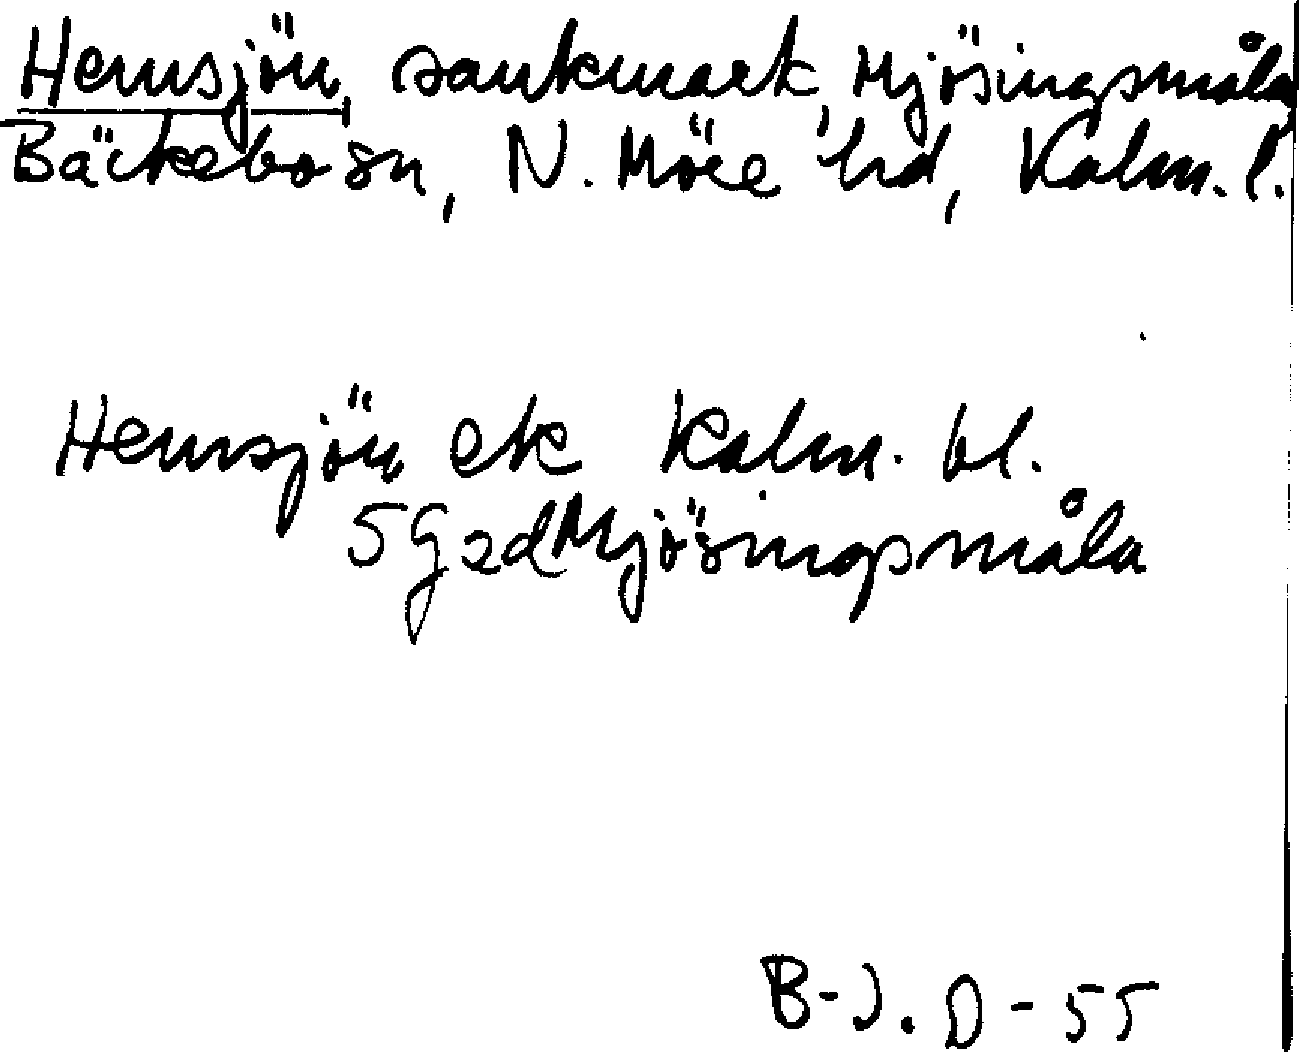 Hemsjön, sankmark, Mjösingsmåla
Bäckebo sn, N. Möre hd, Kalm. l.
Hemsjön ek Kalm. bl.
5G2d Mjösingsmåla
B-J. D-55